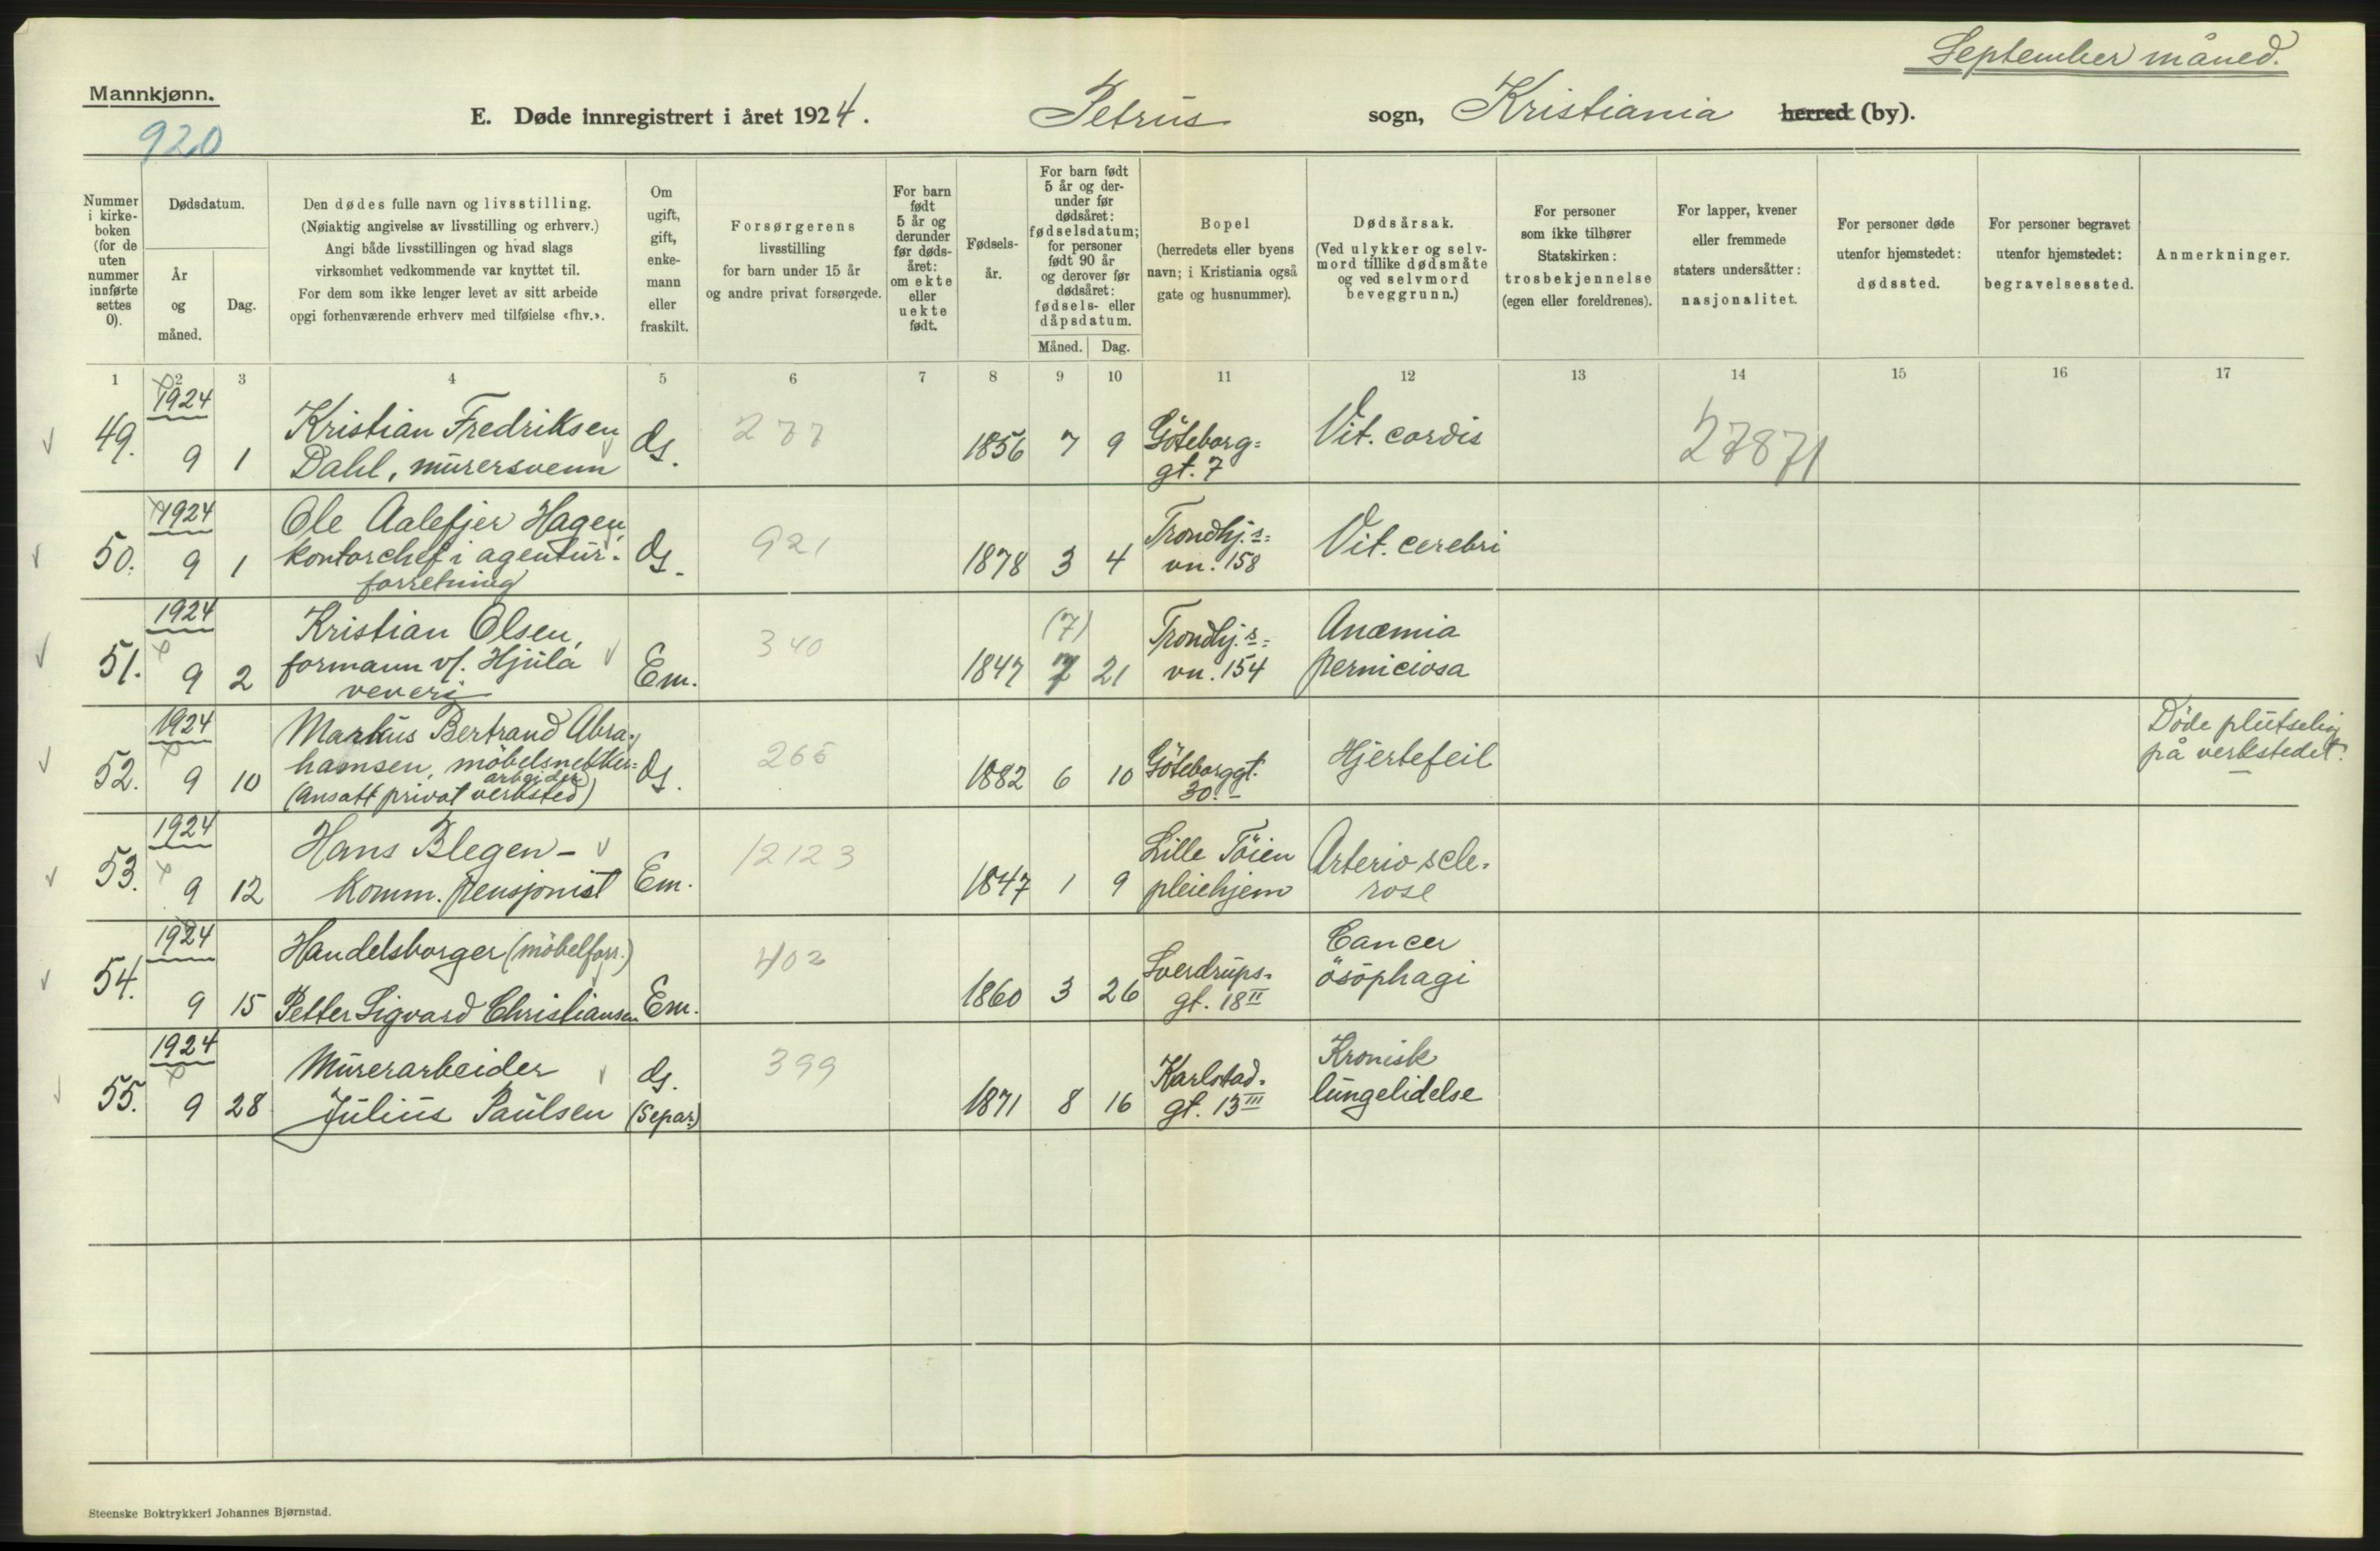 September måned.
Mannkjønn.
920
E. Døde innregistrert i året 1924.
Petrus sogn, Kristiania herred (by).
Nummer i kirkeboken (for de uten nummer innførte settes 0).
Dødsdatum.
År og måned.
Dag.
Den dødes fulle navn og livsstilling.
(Nøiaktig angivelse av livsstilling og erhverv.)
Angi både livsstillingen og hvad slags
virksomhet vedkommende var knyttet til.
For dem som ikke lenger levet av sitt arbeide
opgi forhenværende erhverv med tilføielse «fhv.».
Om ugift, gift, enkemann eller fraskilt.
Forsørgerens
livsstilling
for barn under 15 år
og andre privat forsørgede.
For barn født 5 år og derunder før dødsåret: om ekte eller uekte født.
Fødselsår.
For barn født 5 år og derunder før dødsåret: fødselsdatum; for personer født 90 år og derover før dødsåret: fødsels- eller dåpsdatum.
Måned. Dag.
Bopel
(herredets eller byens
navn; i Kristiania også
gate og husnummer).
Dødsårsak.
(Ved ulykker og selvmord tillike dødsmåte
og ved selvmord
beveggrunn.)
For personer
som ikke tilhører
Statskirken:
trosbekjennelse
(egen eller foreldrenes).
For lapper, kvener
eller fremmede
staters undersåtter:
nasjonalitet.
For personer døde
utenfor hjemstedet:
dødssted.
For personer begravet
utenfor hjemstedet:
begravelsessted.
Anmerkninger.
1 2 3 4 5 6 7 8 9 10 11 12 13 14 15 16 17
49. 1924 9 1 Kristian Fredriksen
Dahl, murersvenn
G. 277 1856 7 9 Göteborg=
gt. 7
Vit. cordis
27871
50. 1924 9 1 Ole Aalefjer Hagen,
kontorchef i agentur-
forretning
G. 921 1878 3 4 Trondhj.s=
vn. 158
Vit. cerebri
51. 1924 9 2 Kristian Olsen,
formann v/. Hjula
veveri
Em. 340 1847 (7) 7 21 Trondhj.s=
vn. 154
Anæmia
perniciosa
52. 1924 9 10 Markus Bertrand Abra-
hamsen, möbelsnekker=
arbeider
(Ansatt privat verksted)
G. 265 1882 6 10 Göteborggt.
30.
Hjertefeil
Døde plutselig
på verkstedet.
53. 1924 9 12 Hans Blegen -
Komm. pensjonist
Em. 12123 1847 1 9 Lille Töien
pleiehjem
Arterio scle-
rose
54. 1924 9 15 Handelsborger (möbelforr.)
Petter Sigvard Christiansen
Em. 402 1860 3 26 Sverdrups-
gt. 18 II
Cancer
ösöphagi
55. 1924 9 28 Murerarbeider
Julius Paulsen
G.
(Separ.)
399 1871 8 16 Karlstad-
gt. 13 III
Kronisk
lungelidelse
Steenske Boktrykkeri Johannes Bjørnstad.